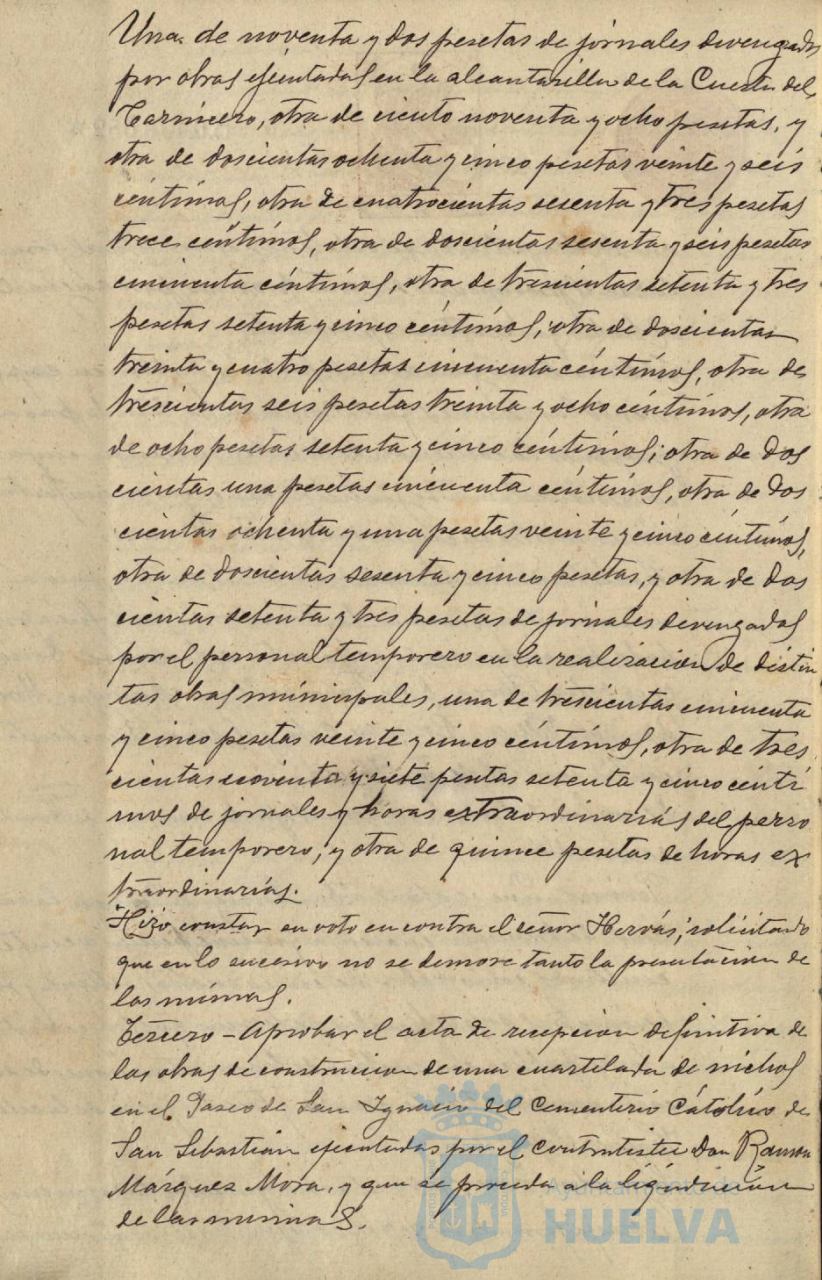 Una de noventa y dos pesetas de jornales devengados
por obras ejecutadas en la alcantarilla de la Cuesta del
Carnicero, otra de ciento noventa y ocho pesetas, y
otra de doscientas ochenta y cinco pesetas veinte y seis
céntimos, otra de cuatrocientas sesenta y tres pesetas
trece céntimos, otra de doscientas sesenta y seis pesetas
cincuenta céntimos, otra de trescientas setenta y tres
pesetas setenta y cinco céntimos; otra de doscientas
treinta y cuatro pesetas cincuenta céntimos, otra de
trescientas seis pesetas treinta y ocho céntimos, otra
de ocho pesetas setenta y cinco céntimos; otra de dos
cientas una pesetas cincuenta céntimos, otra de dos
cientas ochenta y una pesetas veinte y cinco céntimos,
otra de doscientas sesenta y cinco pesetas, y otra de dos
cientas setenta y tres pesetas de jornales devengados
por el personal temporero en la realizacion de distin
tas obras municipales, una de trescientas cincuenta
y cinco pesetas veinte y cinco céntimos, otra de tres
cientas noventa y siete pesetas setenta y cinco centi
mos de jornales y horas extraordinarias del perso
nal temporero; y otra de quince pesetas de horas ex
traordinarias.
Hizo constar su voto en contra el señor Hervás; solicitando
que en lo sucesivo no se demore tanto la presentacion de
las mismas.
Tercero - Aprobar el acta de recepcion definitiva de
las obras de construccion de una cuartelada de nichos
en el Paseo de San Ignacio del Cementerio Católico de
San Sebastián ejecutadas por el contratista Don Ramon
Márquez Mora, y que se proceda a la liquidación
de las mismas.
Ayuntamiento de
HUELVA